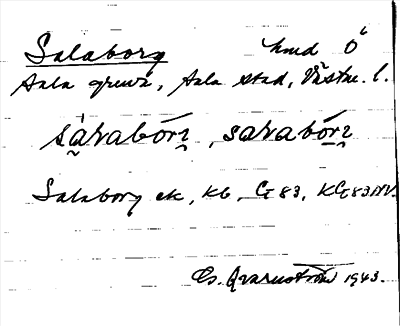 Salaborg hmd Ö
Sala gruva, Sala stad, Västm. l.
sàrabórj, sarabórj
Salaborg ek, Kb, G 83, KG 83 NV.
Gs. Qvarnström 1943.